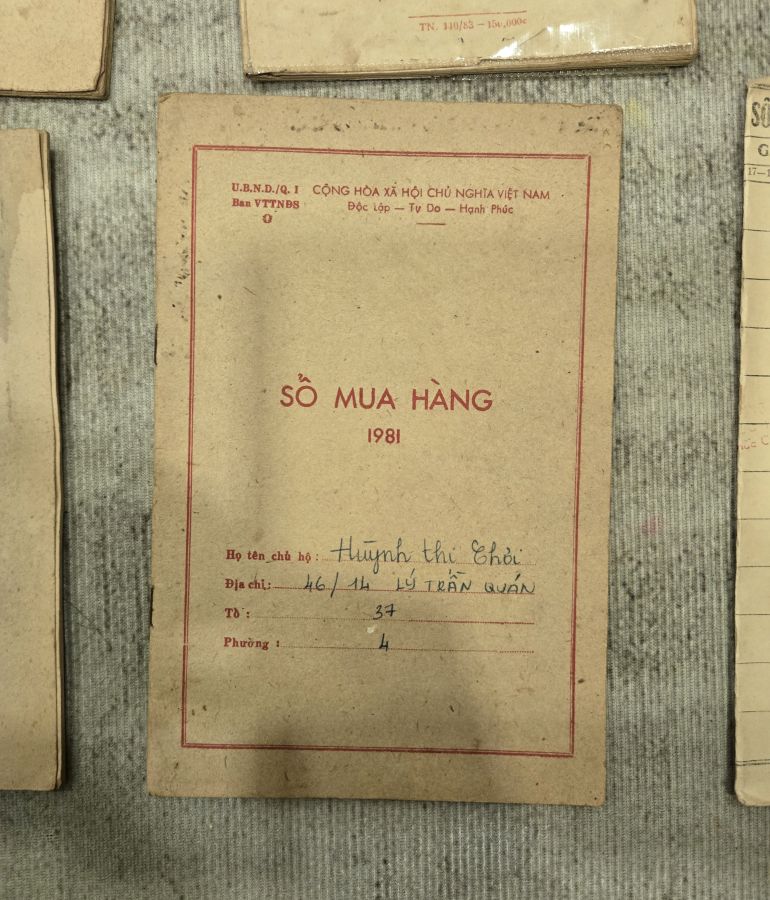 TN. 110/83 — 150,000c
U.B.N.D./Q. 1
Ban VTTNĐS
CỘNG HÒA XÃ HỘI CHỦ NGHĨA VIỆT NAM
Độc Lập — Tự Do — Hạnh Phúc
SỔ MUA HÀNG
1981
Họ tên chủ hộ : Huỳnh thị Thỏi
Địa chỉ : 46/14 LÝ TRẦN QUÁN
Tổ : 37
Phường : 4
SỐ
G
17—1